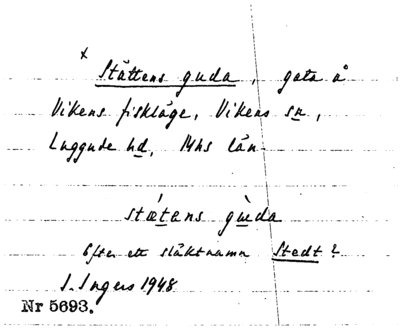 x
Stättens guda, gata å
Vikens fiskläge, Vikens sn,
Luggude hd, Mhs län
stǽtans gùda
Efter ett släktnamn Stedt?
I. Ingers 1948
Nr 5693.